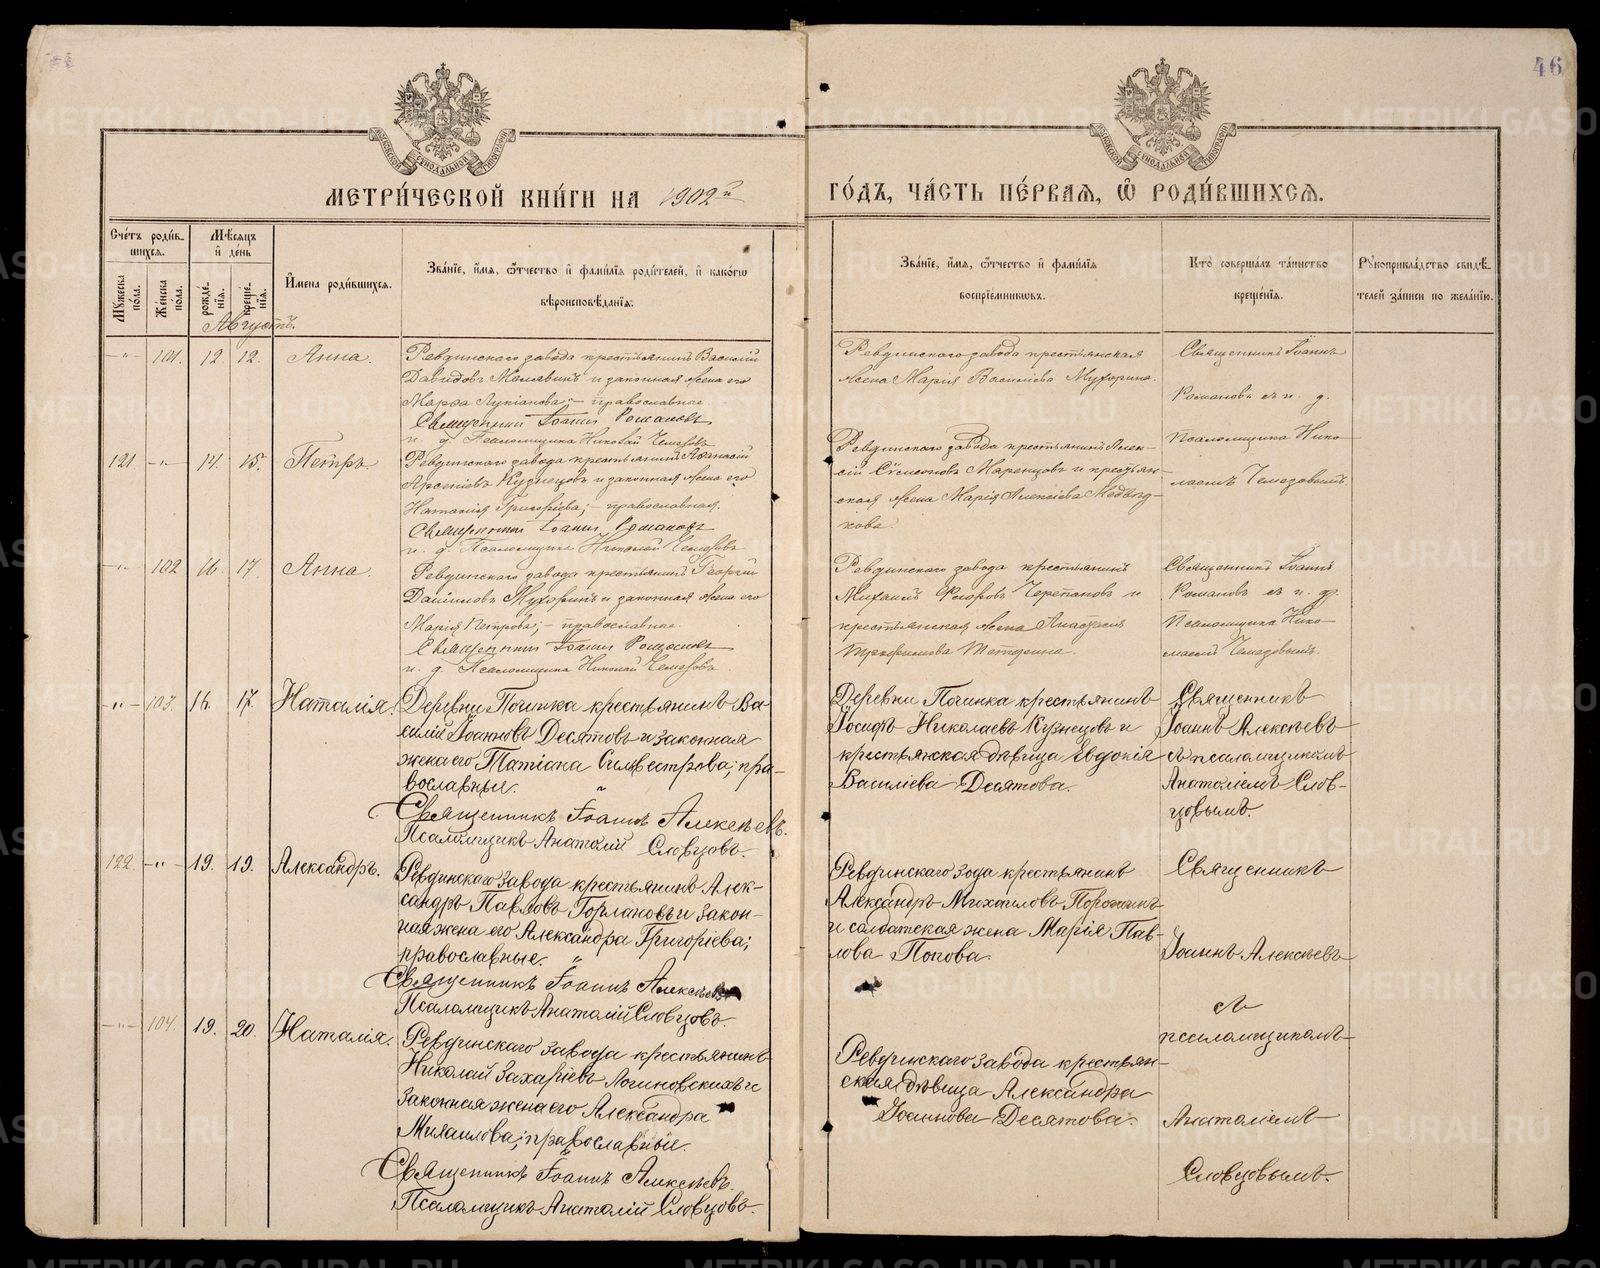 46
МЕТРИ́ЧЕСКОЙ КНИ́ГИ НА 1902й ГО́ДЪ, ЧА́СТЬ ПЕ́РВАЯ, Ѽ РОДИ́ВШИХСЯ.
Сче́тъ роди́в-
шихся.
Мѣ́сяцъ
и҆ де́нь
Мꙋ́жеска
по́ла.
Же́нска
по́ла.
рожде́-
нїя.
креще́-
нїя.
И҆мена̀ роди́вшихся.
Зва́нїе, и҆́мя, ѻ҆́тчество и҆ фами́лїя роди́телей, и҆ како́гѡ
вѣроисповѣ́данїя.
Зва́нїе, и҆́мя, ѻ҆́тчество и҆ фами́лїя
воспрїе́мникѡвъ.
Кто̀ соверша́лъ та́инство
креще́нїя.
Рꙋкоприкла́дство свидѣ́-
телей за́писи по жела́нїю.
Августъ.
-"- 101. 12 12. Анна.
Ревдинскаго завода крестьянинъ Василій
Давидовъ и законная жена его
Марѳа Лукіанова; – православные
Священникъ Іоаннъ Романовъ
и. д. Псаломщика Николай
Ревдинскаго завода крестьянская
жена Марія Василіева Мухорина.
Священникъ Іоаннъ
Романовъ съ и. д.
псаломщика Нико-
лаемъ
121. -"- 14. 15. Петръ
Ревдинскаго завода крестьянинъ Аѳанасій
Арсеніевъ Кузнецовъ и законная жена его
Наталія Григоріева; – православная.
Священникъ Іоаннъ Романовъ
и. д. Псаломщика Николай
Ревдинскаго завода крестьянинъ Алек-
сій Сѵмеоновъ и крестьян-
ская жена Марія Алексіева Медвѣд-
кова.
-"- 102 16 17. Анна.
Ревдинскаго завода крестьянинъ Георгій
Даніиловъ Мухоринъ и законная жена его
Марія Петрова; – православные
Священникъ Іоаннъ Романовъ
и. д. Псаломщика Николай
Ревдинскаго завода крестьянинъ
Михаилъ Ѳедоровъ Черепановъ и
крестьянская жена Анастасія
Священникъ Іоаннъ
Романовъ съ и. д.
Псаломщика Нико-
лаемъ
-"- 103. 16. 17. Наталія.
Деревни Починка крестьянинъ Ва-
силій Іоанновъ Десятовъ и законная
жена его Татіана Сильвестрова; пра-
вославные.
Священникъ Іоаннъ Алексѣевъ.
Псаломщикъ Анатолій Словцовъ.
Деревни Починка крестьянинъ
Іосифъ Николаевъ Кузнецовъ и
крестьянская дѣвица Евдокія
Василіева Десятова.
Священникъ
Іоаннъ Алексѣевъ
съ псаломщикомъ
Анатоліемъ Слов-
цовымъ.
122. -"- 19. 19. Александръ.
Ревдинскаго завода крестьянинъ Алек-
сандръ Павловъ Горлановъ и закон-
ная жена его Александра Григоріева;
православные.
Священникъ Іоаннъ Алексѣевъ
Псаломщикъ Анатолій Словцовъ.
Ревдинскаго зода крестьянинъ
Александръ Михаиловъ
и солдатская жена Марія Пав-
лова Попова.
Священникъ
Іоаннъ Алексѣевъ
съ
псаломщикомъ
Анатоліемъ
Словцовымъ.
-"- 104. 19. 20. Наталія.
Ревдинскаго завода крестьянинъ
Николай Захаріевъ Логиновскихъ и
законная жена его Александра
Михаилова; православные.
Священникъ Іоаннъ Алексѣевъ.
Псаломщикъ Анатолій Словцовъ.
Ревдинскаго завода крестьян-
ская дѣвица Александра
Іоаннова Десятова.